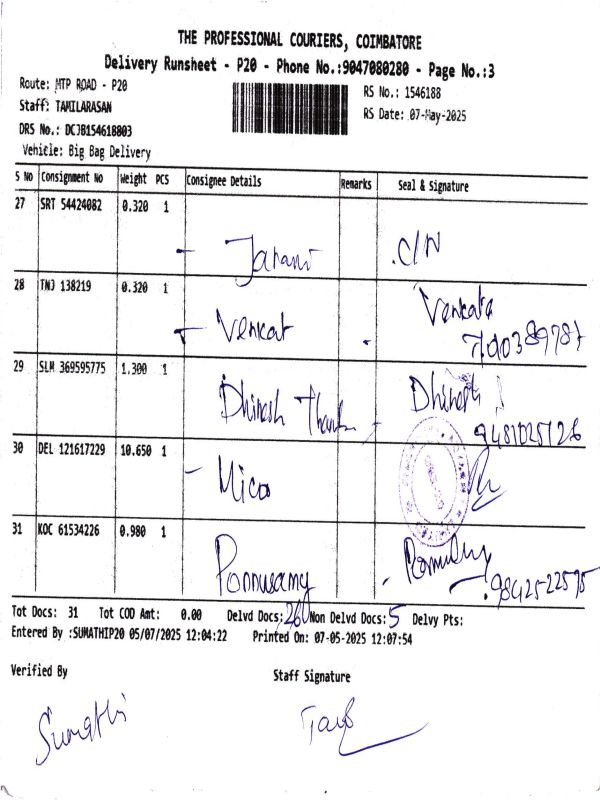 THE PROFESSIONAL COURIERS, COIMBATORE
Delivery Runsheet - P20 - Phone No.:9047080280 - Page No.:3
Route: MTP ROAD - P20
RS No.: 1546188
Staff: TAMILARASAN
RS Date: 07-May-2025
DRS No.: DCJB154618803
Vehicle: Big Bag Delivery
S No Consignment No Weight PCS Consignee Details Remarks Seal & Signature
27 SRT 54424082 0.320 1
28 TNJ 138219 0.320 1
Venkat
29 SLM 369595775 1.300 1
Dhinesh Dhinesh
9481025126
30 DEL 121617229 10.650 1
Mico
31 KOC 61534226 0.980 1
Ponnusamy
9842522575
Tot Docs: 31 Tot COD Amt: 0.00 Delvd Docs: 26 Non Delvd Docs: 5 Delvy Pts:
Entered By :SUMATHIP20 05/07/2025 12:04:22 Printed On: 07-05-2025 12:07:54
Verified By Staff Signature
Sumathi